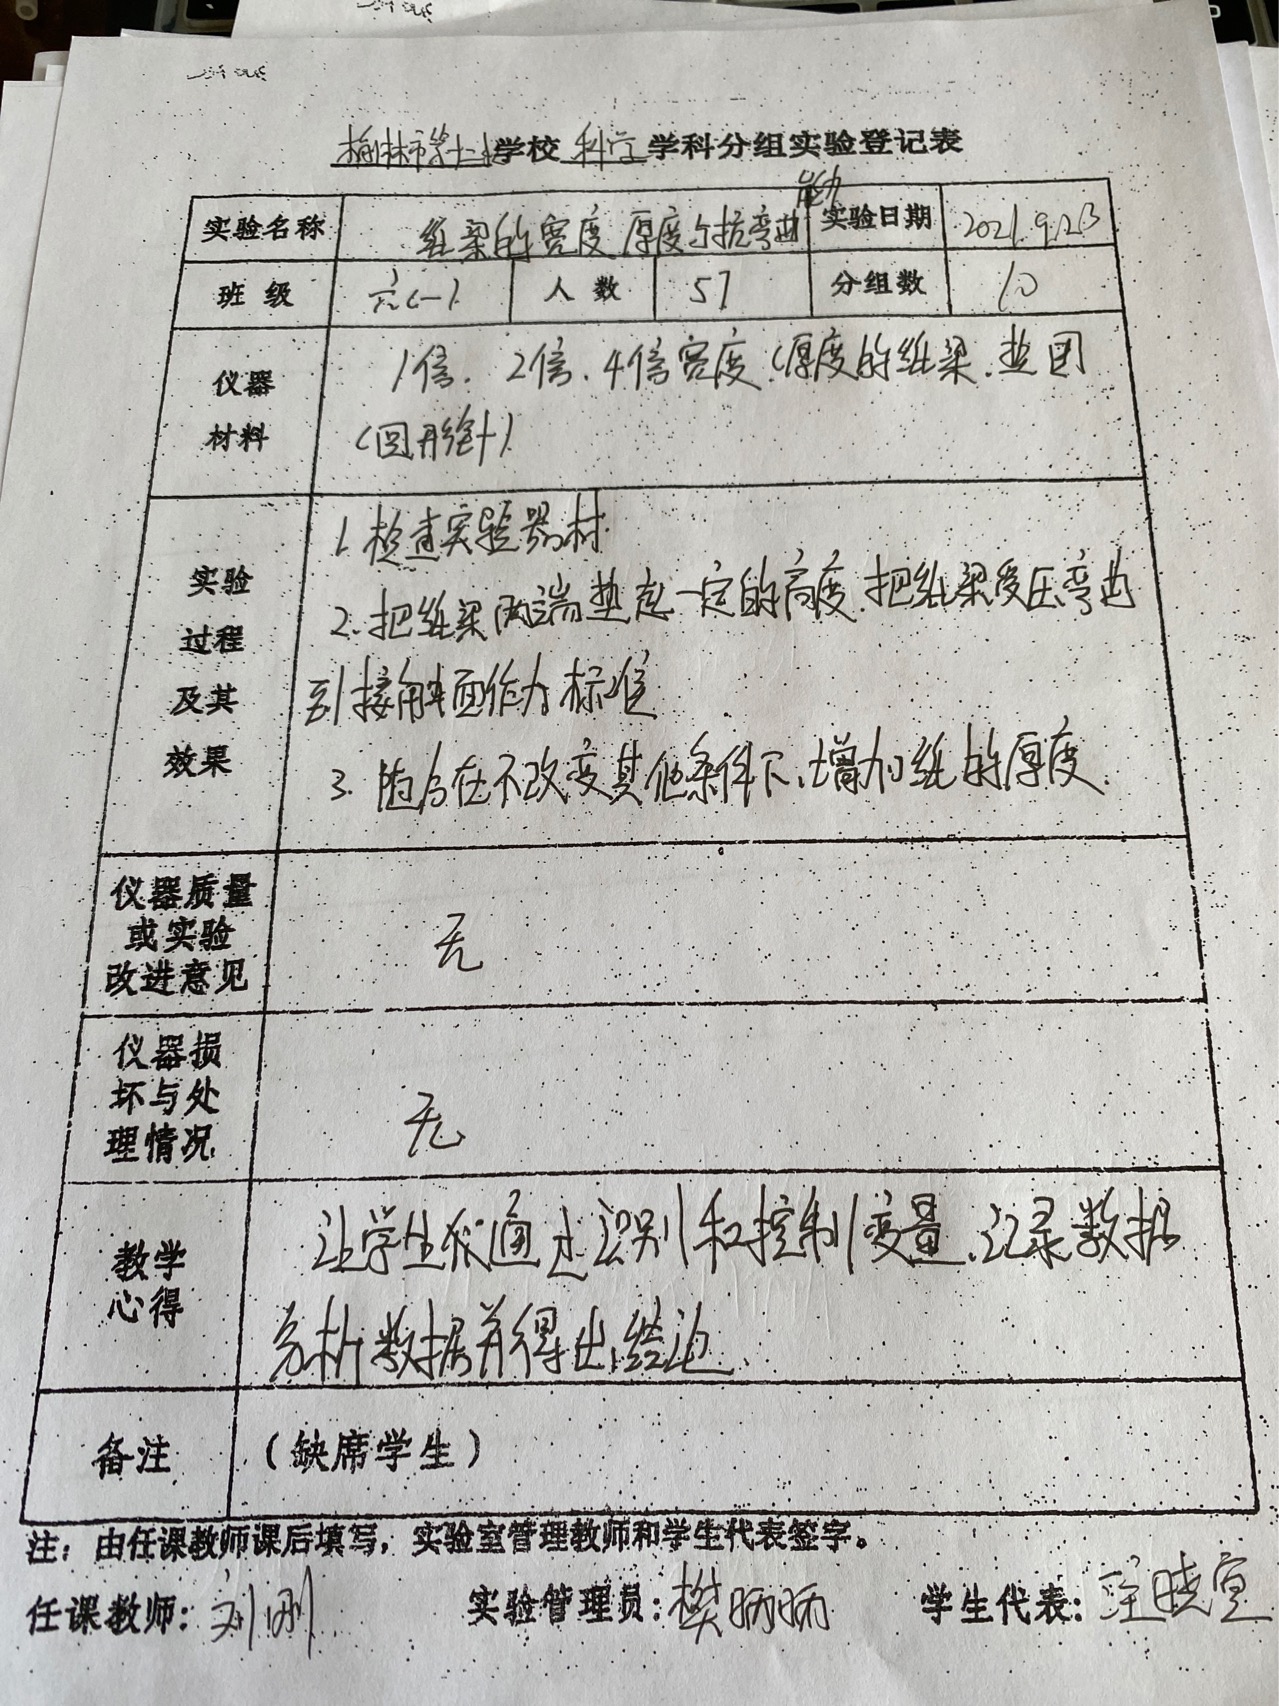 榆林市第十二小学校 科学 学科分组实验登记表
实验名称 纸梁的宽度 厚度与抗弯曲能力 实验日期 2021.9.23
班 级 六(一) 人 数 57 分组数 10
仪器材料 1倍、2倍、4倍宽度、(厚度的纸梁、垫圈
(回形针)
实验过程及其效果 1. 检查实验器材
2. 把纸梁两端垫起一定的高度,把纸梁受压弯曲
到接触面作为标准
3. 随后在不改变其他条件下,增加纸的厚度.
仪器质量或实验改进意见 无
仪器损坏与处理情况 无
教学心得 让学生们通过识别和控制变量、记录数据
分析数据并得出结论
备注 (缺席学生)
注: 由任课教师课后填写, 实验室管理教师和学生代表签字。
任课教师: 刘刚 实验管理员: 樊 学生代表: 汪晓宣